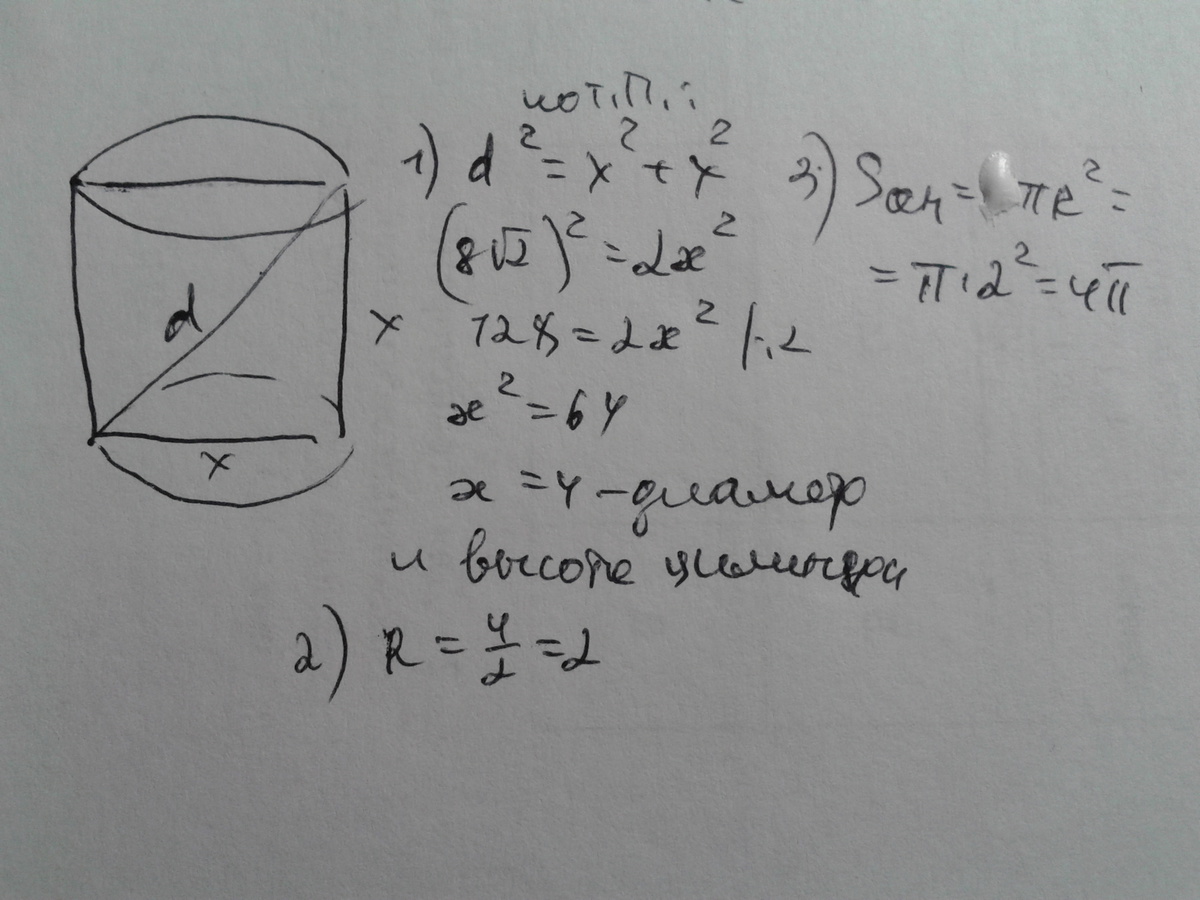 по т. П.:
1) d² = x² + x²
(8√2)² = 2x²
128 = 2x² |:2
x² = 64
x = 4 – диаметр
и высота цилиндра
2) R = 4/2 = 2
3) Sосн = πR² =
= π·2² = 4π
d
x
x